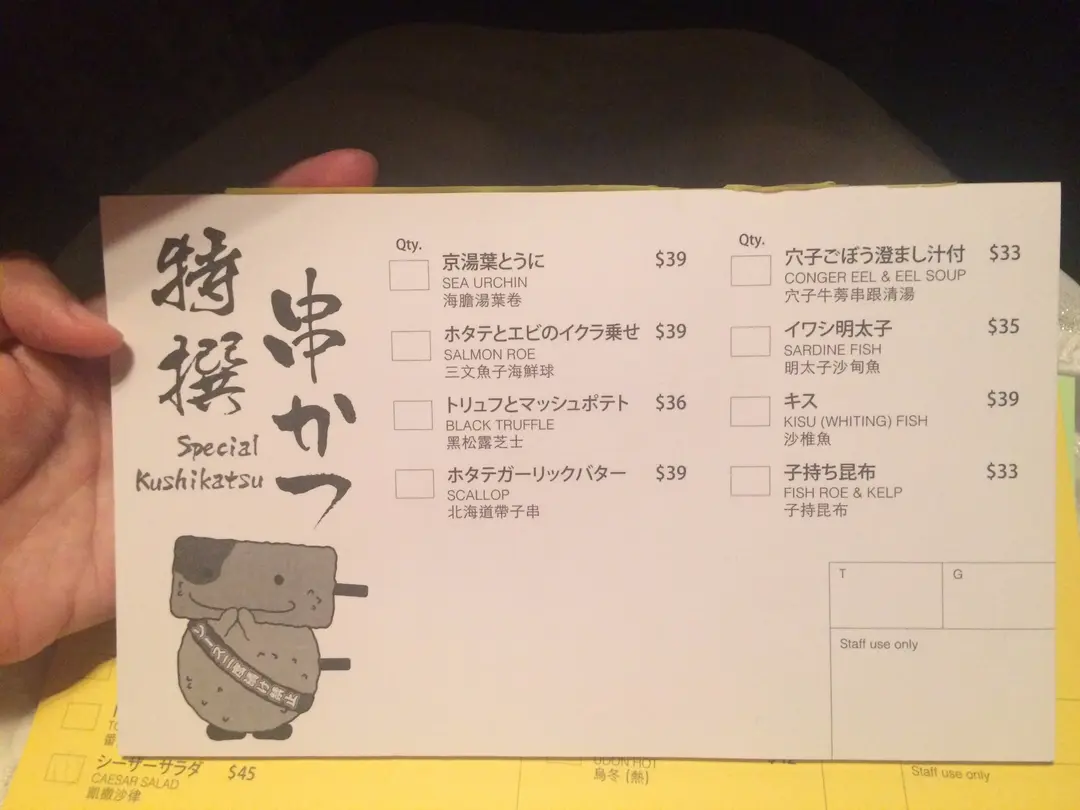 特撰
串かつ
Special
Kushikatsu
Qty.
京湯葉とうに $39
SEA URCHIN
海膽湯葉卷
ホタテとエビのイクラ乗せ $39
SALMON ROE
三文魚子海鮮球
トリュフとマッシュポテト $36
BLACK TRUFFLE
黑松露芝士
ホタテガーリックバター $39
SCALLOP
北海道帶子串
Qty.
穴子ごぼう澄まし汁付 $33
CONGER EEL & EEL SOUP
穴子牛蒡串跟清湯
イワシ明太子 $35
SARDINE FISH
明太子沙甸魚
キス $39
KISU (WHITING) FISH
沙椎魚
子持ち昆布 $33
FISH ROE & KELP
子持昆布
T
G
Staff use only
ソース二度漬け禁止
シーザーサラダ $45
CAESAR SALAD
凱撒沙律
UDON HOT
烏冬 (熱)
Staff use only